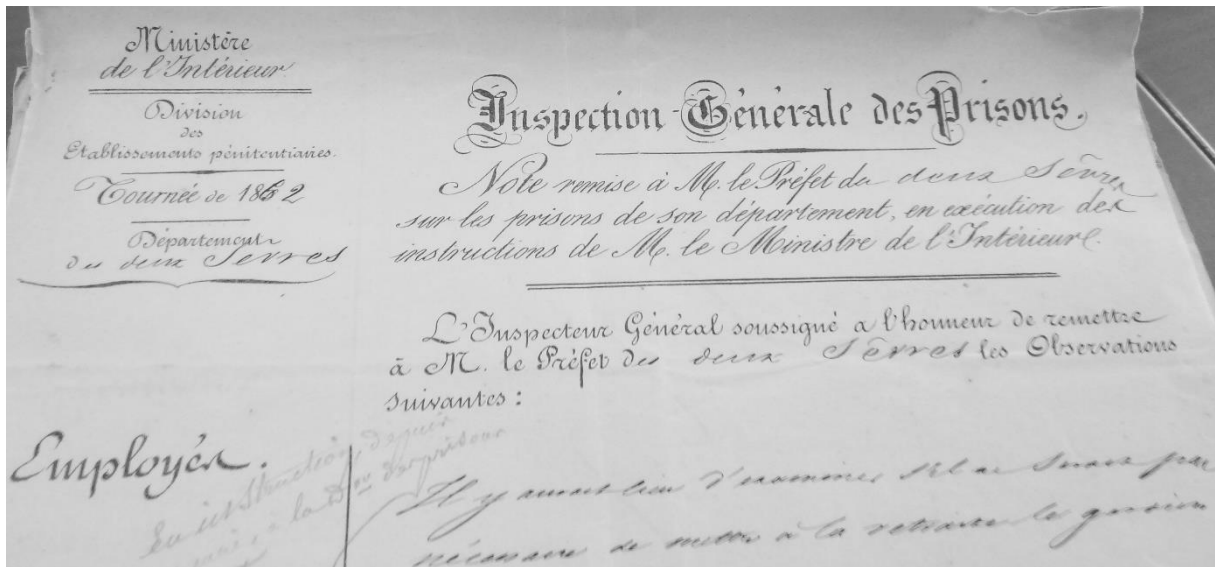 Ministère
de l'Intérieur
Division
des
Etablissements pénitentiaires.
Tournée de 1852
Département
des deux Sèvres
Inspection Générale des Prisons.
Note remise à M. le Préfet du deux Sèvres
sur les prisons de son département, en exécution des
instructions de M. le Ministre de l'Intérieur.
L'Inspecteur Général soussigné a l'honneur de remettre
à M. le Préfet des deux Sèvres les Observations
suivantes :
Employés.
En instruction, depuis
à la Don des prisons
Il y aurait lieu d'examiner s'il ne serait pas
nécessaire de mettre à la retraite le gardien